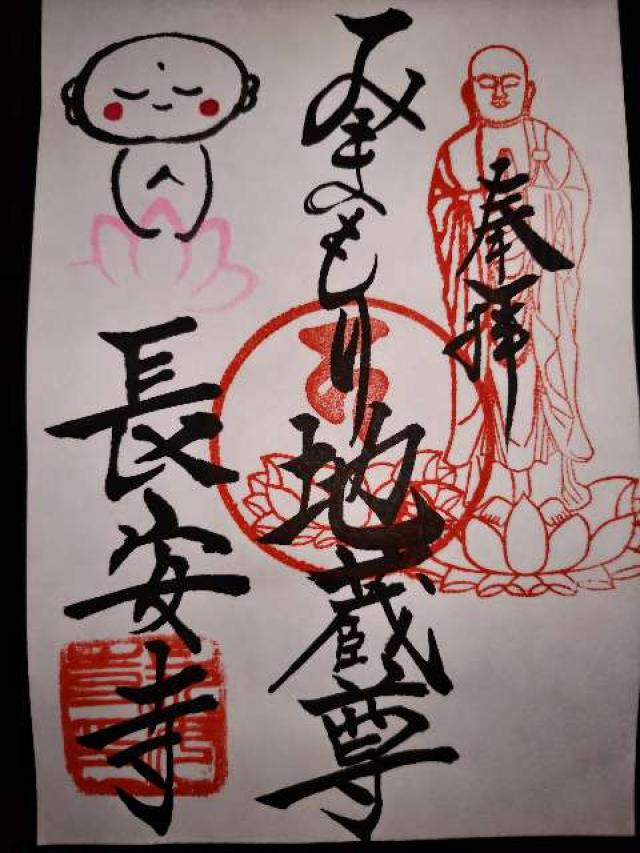 奉拝
まもり地蔵尊
長安寺